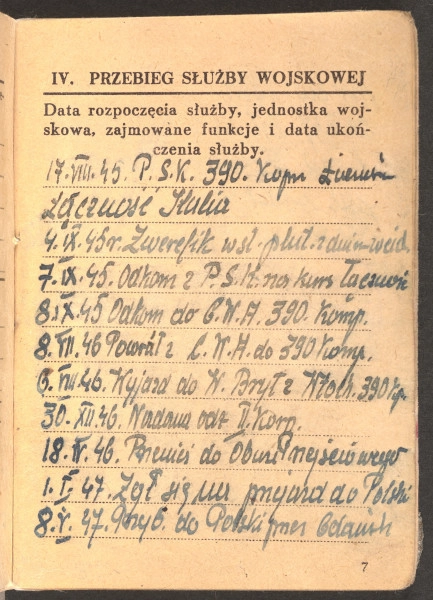 IV. PRZEBIEG SŁUŻBY WOJSKOWEJ
Data rozpoczęcia służby, jednostka woj-
skowa, zajmowane funkcje i data ukoń-
czenia służby.
17.VIII.45. P.S.K. 390. Komp.
Łączność Italia
4.IX.45r. w st. plut. z dniem
7.IX.45. Odkom z P.S.K. na kurs Łączność
8.IX.45 Odkom do C.W.A. 390. Komp.
8.VII.46 Powrót z C.W.A. do 390 Komp.
6.VIII.46. Wyjazd do W. Bryt z Włoch. 390 Kp.
30.XII.46. Nadana odz. II. Korp.
18.IV.46. Przenieś do Obozu
1.I.47. Zgł się na wyjazd do Polski
8.V.47. Przyb. do Polski przez Gdańsk
7